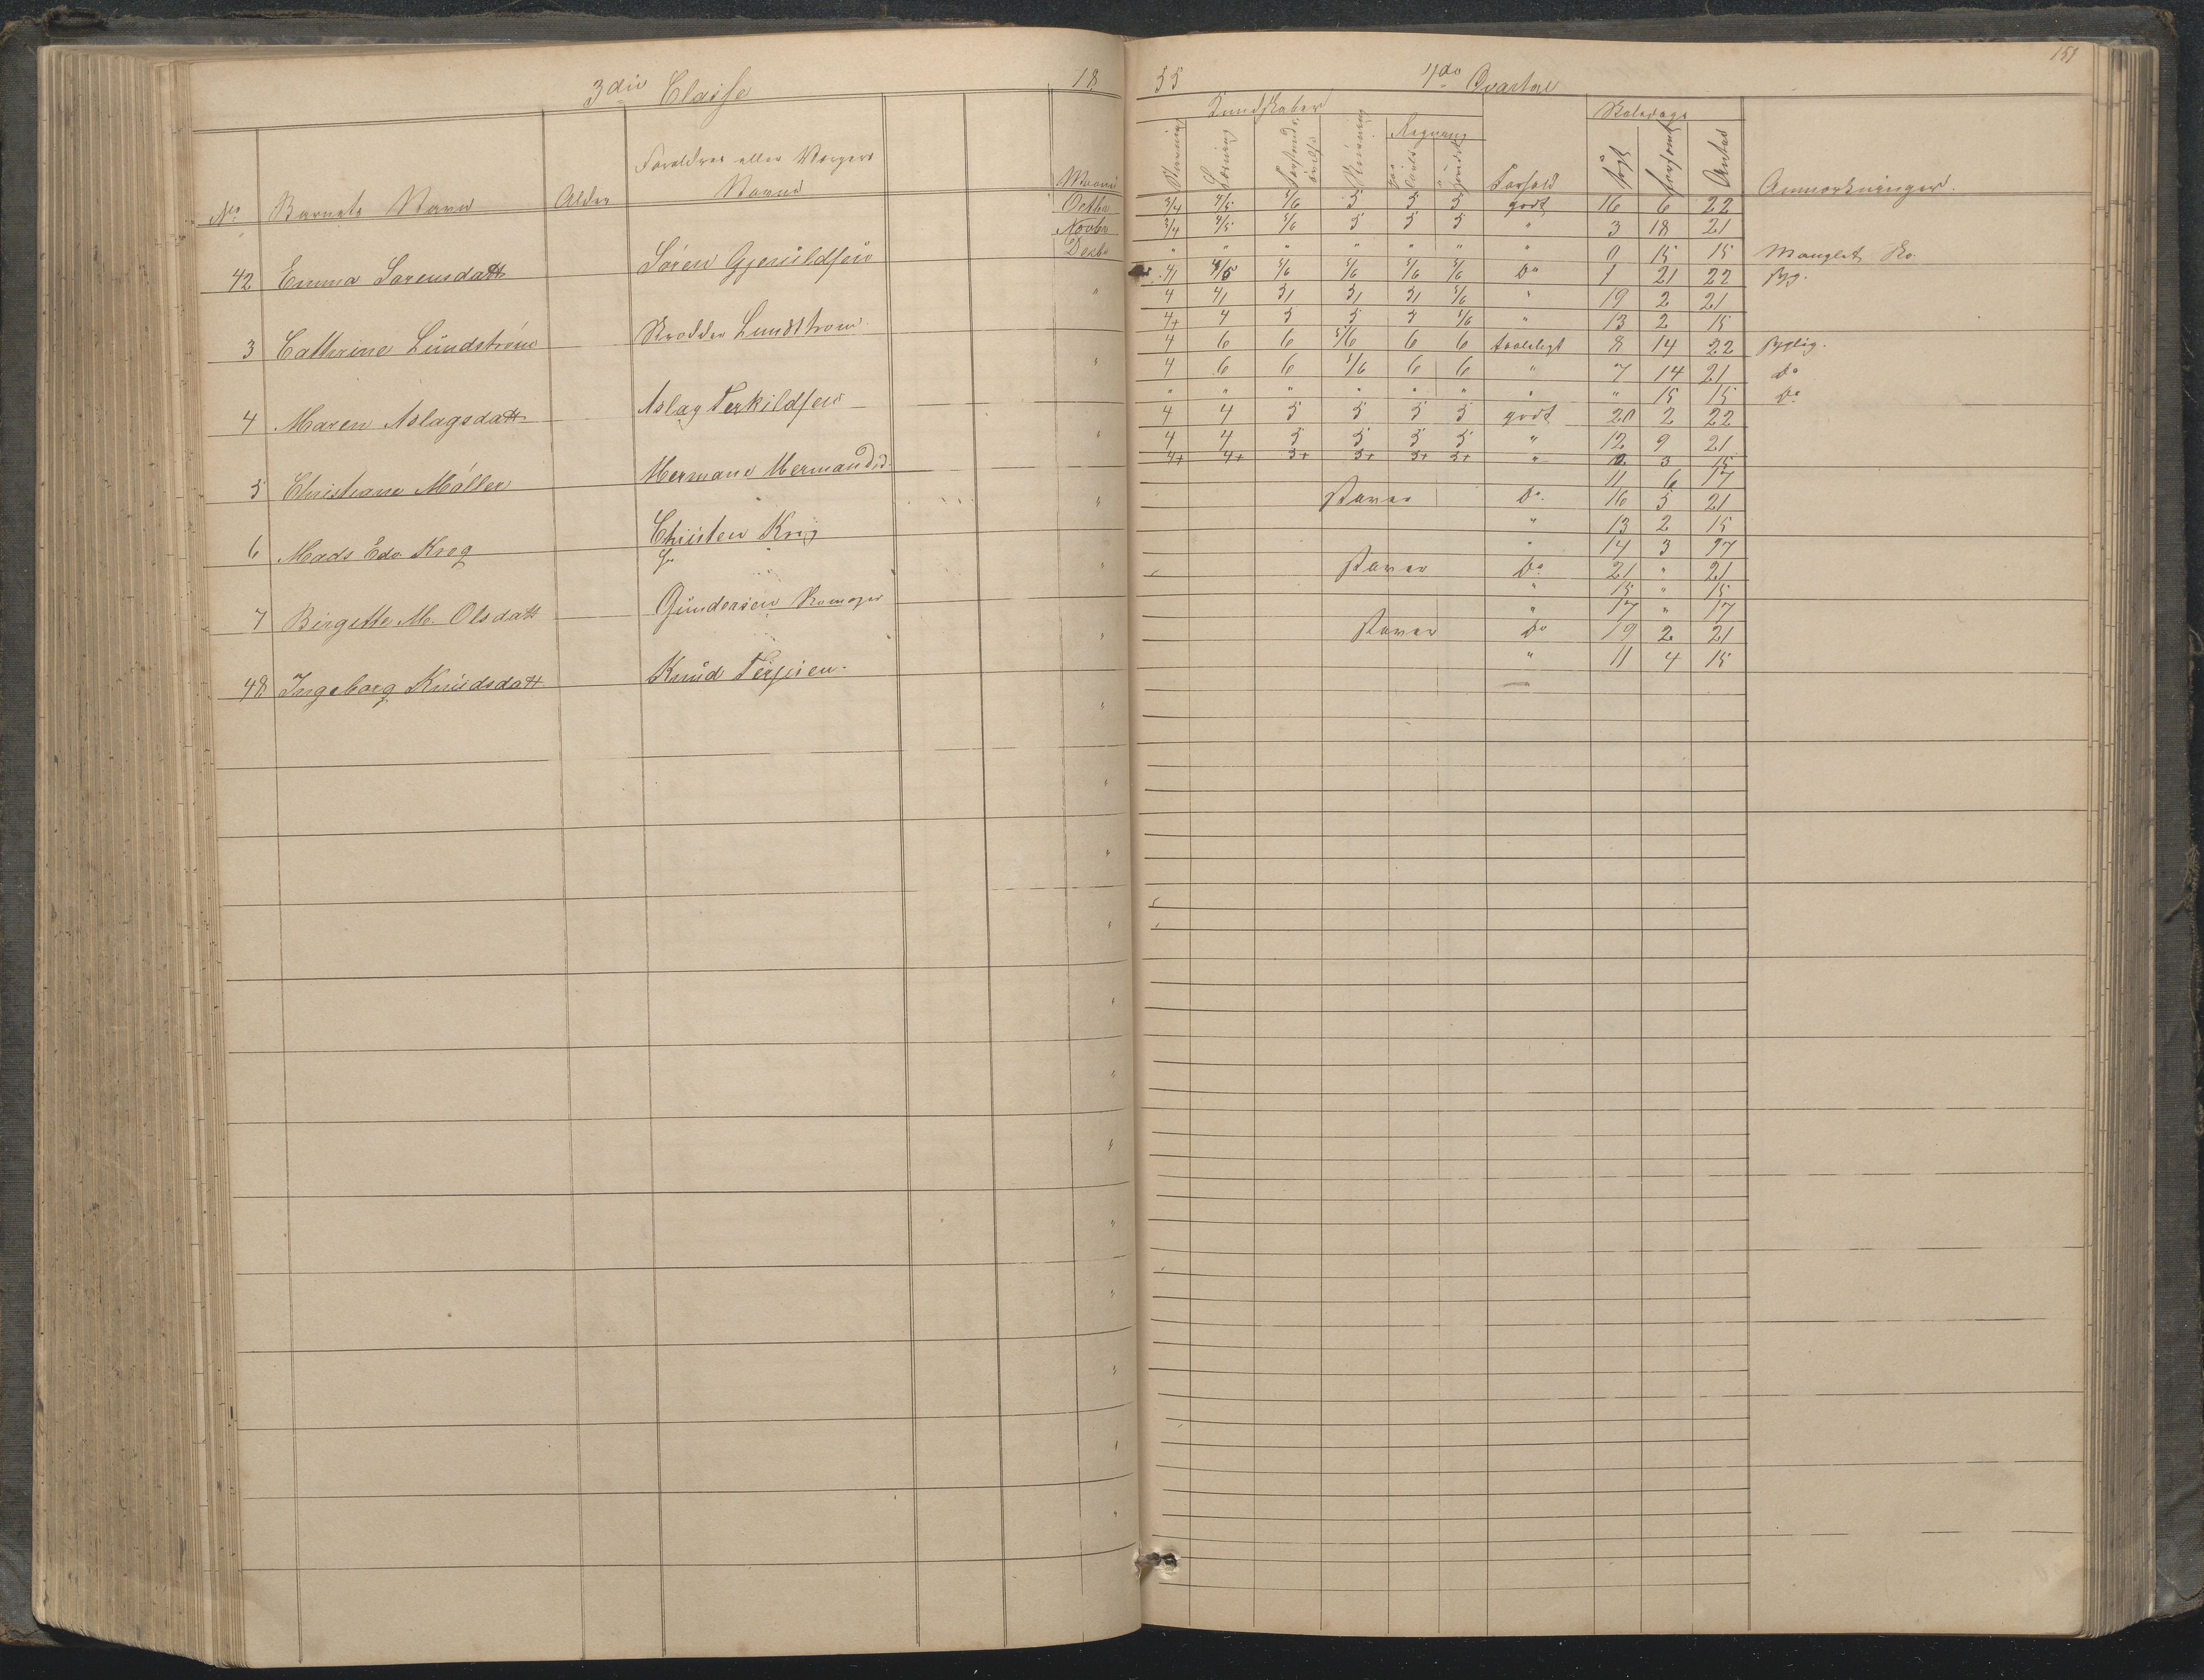 151
3die Classe 1855 4de Qvartal
Kundskaber Skoledage
Forældres eller Værges Regning
No Barnets Navn Alder Navne Maaned Læsning Forhold søgt forsømt Antal Anmærkninger.
Octbr 3/4 4/5 5/6 5 5 5 godt 16 6 22
Novbr 3/4 4/5 5/6 5 5 5 " 3 18 21
42 Emma Sørensdatt Søren Gjeruldsen Decbr " " " " " " " 0 15 15 Manglet Sko
4 4/5 5/6 5/6 5/6 5/6 Do 1 21 22 Syg.
" 4 4 5 5 5 5/6 " 19 2 21
3 Cathrine Lündstrém Skrædder Lundstrøm 4+ 4 5 5 5 5/6 " 13 2 15
4 6 6 5/6 6 6 taaleligt 8 14 22 Syglig.
" 4 6 6 5/6 6 6 " 7 14 21 Do
4 Maren Aslagsdatt Aslag Terkildsen " " " " " " " " 15 15 Do
4 4 5 5 5 5 godt 20 2 22
" 4 4 5 5 5 5 " 12 9 21
5 Christiane Möller Hermane Hermandsd 4+ 4+ 5+ 5+ 5+ 5+ " 12 3 15
11 6 17
" Staver Do. 16 5 21
6 Mads Edv Kreg Christen Krig " 13 2 15
" 14 3 17
" Staver Do. 21 " 21
7 Birgitte M. Olsdatt Gündersen " 15 " 15
" 17 " 17
" Staver Do 19 2 21
48 Ingeborg Knüdsdatt Knud Terjesen. " 11 4 15